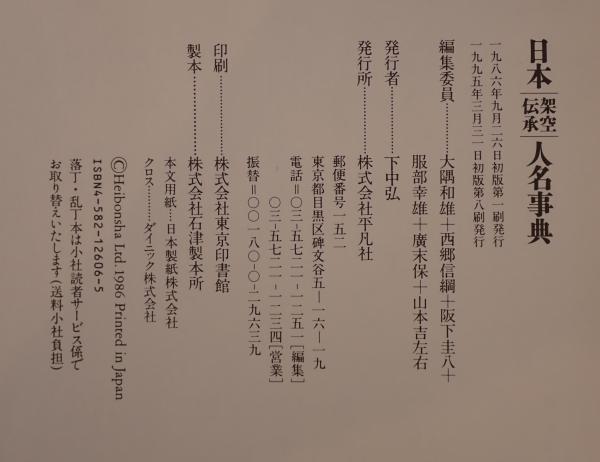 日本架空伝承人名事典
一九八六年九月二六日初版第一刷発行
一九九五年三月三一日初版第八刷発行
編集委員…………大隅和雄＋西郷信綱＋阪下圭八＋
服部幸雄＋廣末保＋山本吉左右
発行者…………下中弘
発行所…………株式会社平凡社
郵便番号一五二
東京都目黒区碑文谷五—一六—一九
電話＝〇三-五七二一-一二五一［編集］
〇三-五七二一-一二三四［営業］
振替＝〇〇一八〇-〇-二九六三九
印刷…………株式会社東京印書館
製本…………株式会社石津製本所
本文用紙…日本製紙株式会社
クロス…………ダイニック株式会社
©Heibonsha Ltd. 1986 Printed in Japan
ISBN4-582-12606-5
落丁・乱丁本は小社読者サービス係で
お取り替えいたします（送料小社負担）